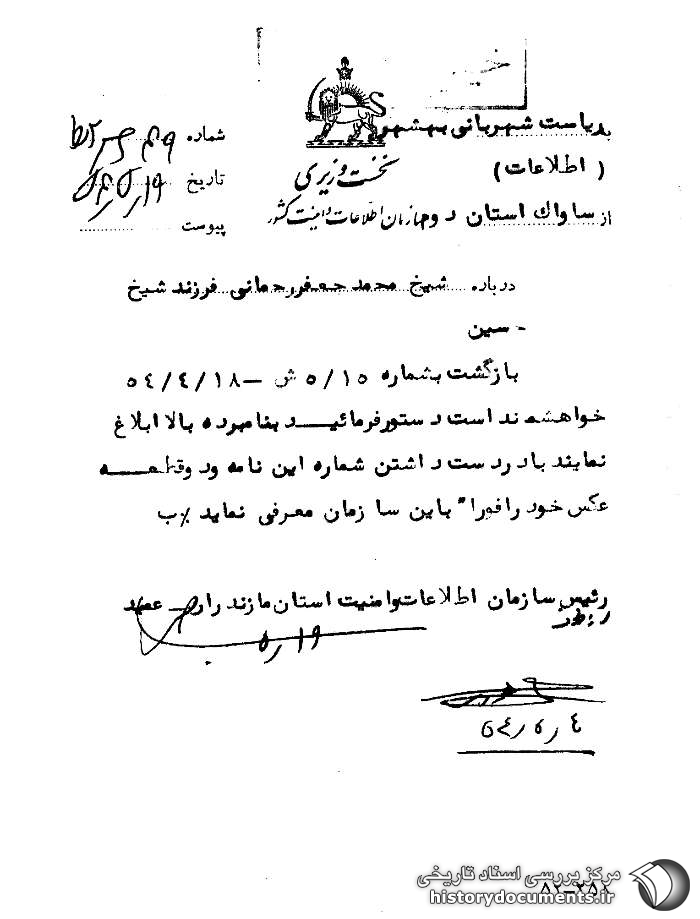 خیلی
به ریاست شهربانی بهشهر
(اطلاعات)
نخست وزیری
از ساواك استان دوم
سازمان اطلاعات و امنیت کشور
شماره
تاریخ
پیوست
درباره شیخ محمد جعفر رحمانی فرزند شیخ
حسین
بازگشت بشماره ۵/۱۵ ش – ۵٤/٤/۱۸
خواهشمند است دستور فرمائیـــد بنامبرده بالا ابلاغ
نمایند با در دست داشتن شماره این نامه و دو قطعـــه
عکس خود را فورا" باین سازمان معرفی نماید /.ب
رئیس سازمان اطلاعات و امنیت استان مازندران
۵/۱۹
۵٤/۵/٤
مرکز بررسی اسناد تاریخی
historydocuments.ir